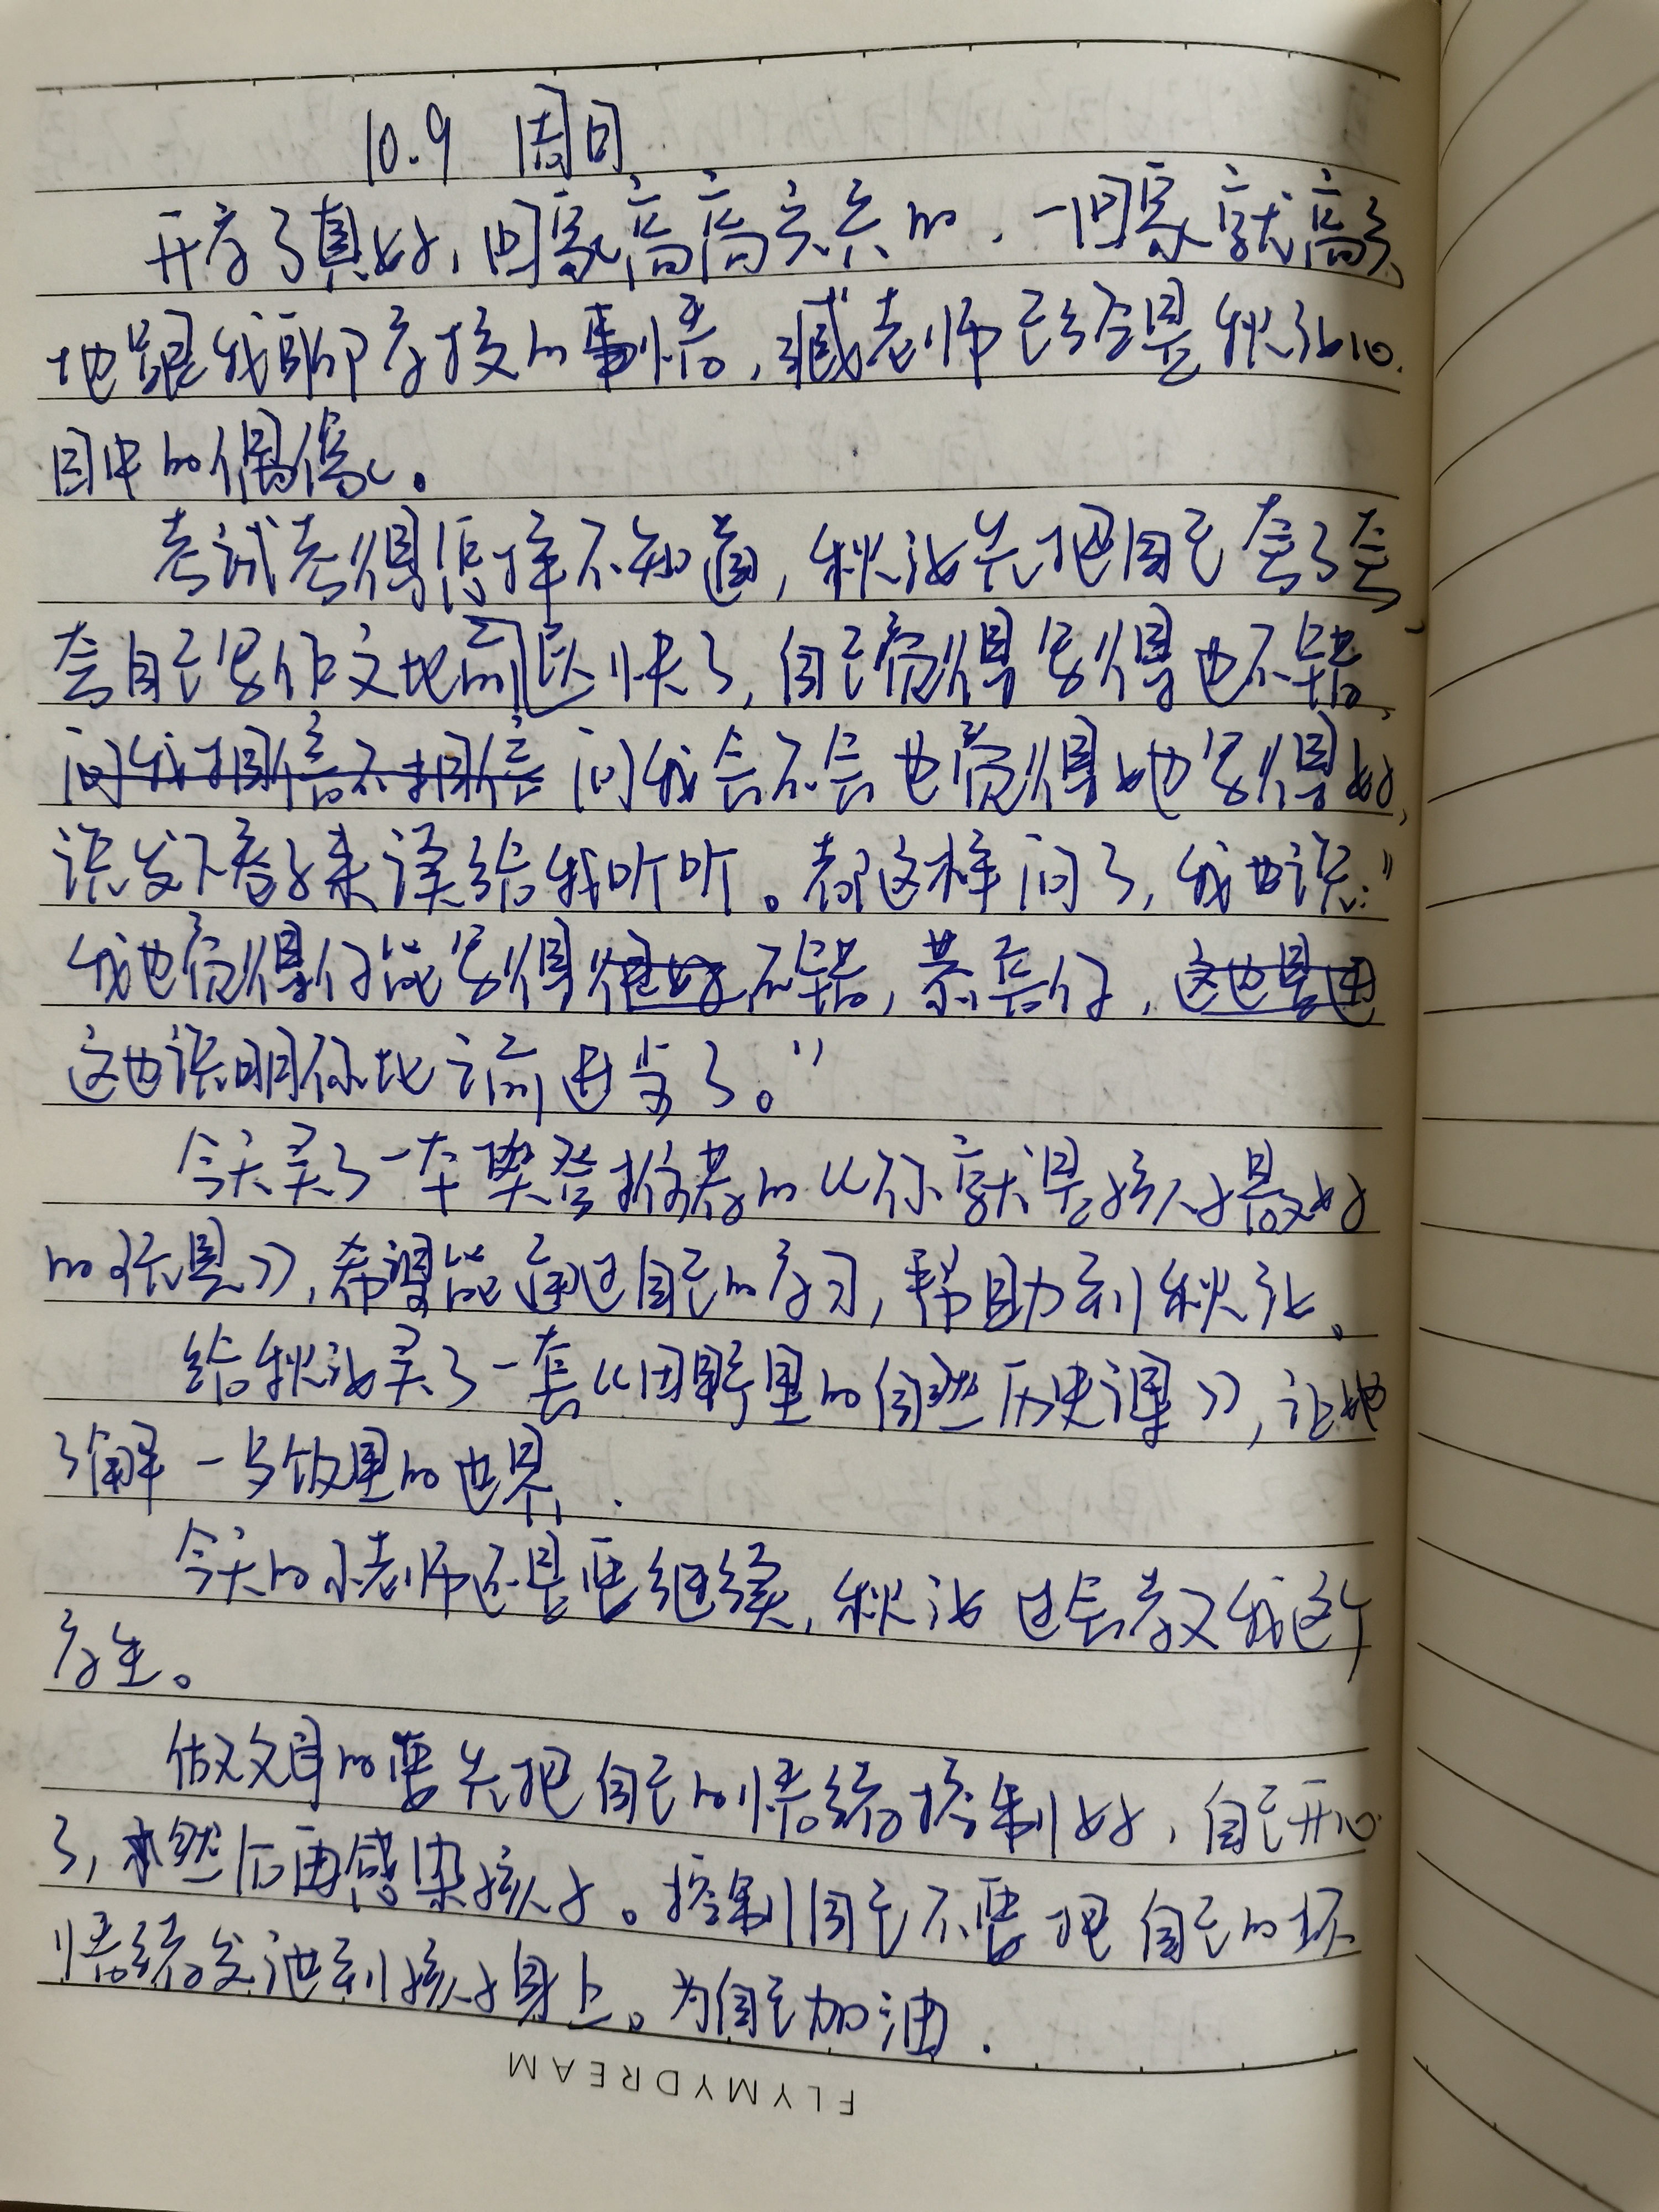 10.9 周日
开学了真好,回家高高兴兴的,一回家就高兴
地跟我聊学校的事情,臧老师已经是秋泓心
目中的偶像。
考试考得怎样不知道,秋泓先把自己夸了夸,
夸自己写作文比前匹快了,自己觉得写得也不错,
问我相信不相信 问我会不会也觉得她写得好,
说发下卷子来读给我听听。都这样问了,我也说:"
我也觉得你能写得很好不错,恭喜你,这也是进
这也说明你比以前进步了。"
今天买了一本樊登推荐的《你就是孩子最好
的玩具》,希望能通过自己的学习,帮助到秋泓。
给秋泓买了一套《田野里的自然历史课》,让她
了解一些饭里的世界.
今天的小老师还是要继续,秋泓也会教我这个
学生。
做父母的要先把自己的情绪控制好,自己开心
了,然后再感染孩子。控制自己不要把自己的坏
情绪发泄到孩子身上。为自己加油.
FLYMYDREAM